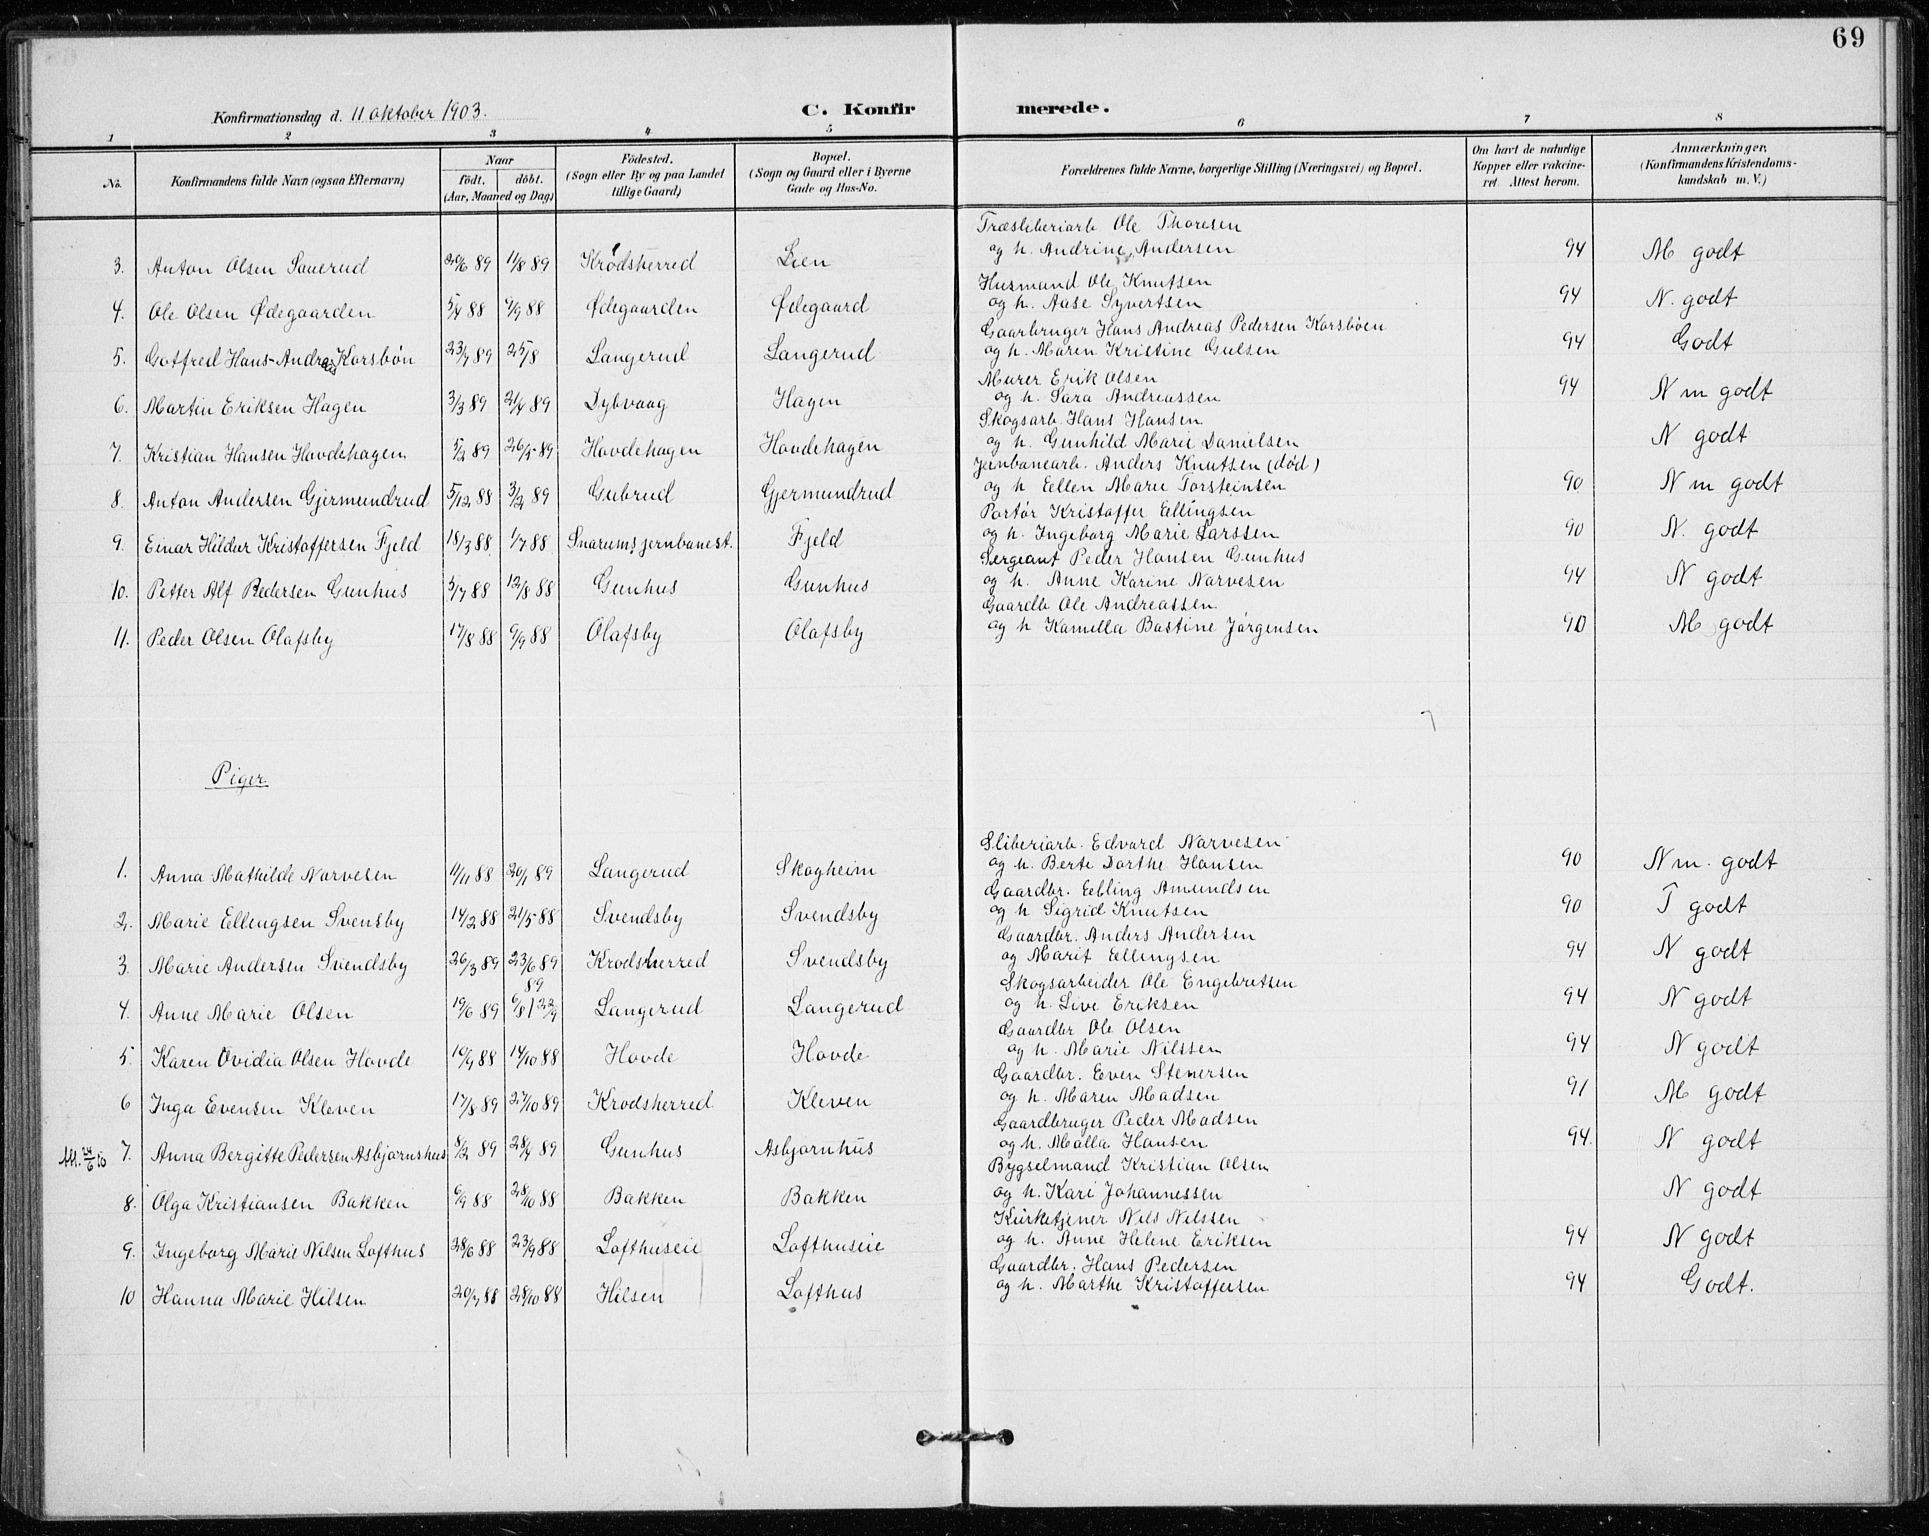 69
Konfirmationsdag d. 11 Oktober 1903.
C. Konfirmerede.
1 2 3 4 5 6 7 8
No. Konfirmandens fulde Navn (ogsaa Efternavn) Naar födt. döbt. (Aar, Maaned og Dag) Födested. (Sogn eller By og paa Landet tillige Gaard) Bopæl. (Sogn og Gaard eller i Byerne Gade og Hus-No. Forældrenes fulde Navne, borgerlige Stilling (Næringsvei) og Bopæl. Om havt de naturlige Kopper eller vakcineret. Attest herom. Anmærkninger. (Konfirmandens Kristendomskundskab m. V.)
Træsliberiarb Ole Thoresen
3. Anton Olsen Sauerud 20/6 89 11/8 89 Krødsherred Lien og h. Andrine Andersen 94 M godt
Husmand Ole Knutsen
4. Ole Olsen Ødegaarden 5/4 88 9/9 88 Ødegaarden Ødegaard og h. Aase Syvertsen 94 N. godt
Gaarbruger Hans Andreas Pedersen Korsbøen
5. Gotfred Hans-Andreas Korsbøn 23/7 89 25/8 Langerud Langerud og h. Maren Kristine Gulsen 94 Godt
Murer Erik Olsen
6. Martin Eriksen Hagen 3/3 89 21/4 89 Dybvaag Hagen og h. Sara Andreassen 94 N m godt
Skogsarb. Hans Hansen
7. Kristian Hansen Hovdehagen 5/2 89 26/5 89 Hovdehagen Hovdehagen og h. Gunhild Marie Danielsen N godt
Jernbanearb. Anders Knutsen (død)
8. Anton Andersen Gjermundrud 5/12 88 3/2 89 Gubrud Gjermundrud og h Ellen Marie Torsteinsen 90 N m godt
Portør Kristoffer Ellingsen
9. Einar Hildur Kristoffersen Fjeld 18/3 88 1/7 88 Snarums jernbanest. Fjeld og h. Ingeborg Marie Larssen 90 N. godt
Sergeant Peder Hansen Gunhus
10. Petter Alf Pedersen Gunhus 5/7 88 12/8 88 Gunhus Gunhus og h. Anne Karine Narvesen 94 N godt
Gaardb Ole Andreassen
11. Peder Olsen Olafsby 17/8 88 9/9 88 Olafsby Olafsby og h Kamella Bastine Jørgensen 90 M godt
Piger
Sliberiarb. Edvard Narvesen
1. Anna Mathilde Narvesen 11/11 88 20/1 89 Langerud Skogheim og h. Berte Dorthe Hansen 90 N m. godt
Gaardbr. Elling Amundsen
2. Marie Ellingsen Svensby 14/2 88 21/5 88 Svendsby Svendsby og h Sigrid Knutsen 90 T godt
Gaardbr. Anders Andersen
3. Marie Andersen Svendsby 26/3 89 23/6 89 Krodsherred Svendsby og Marit Ellingsen 94 N godt
Skogsarbeider Ole Engebretsen
4. Anne Marie Olsen 19/6 89 6/8 89 22/9 Langerud Langerud og h. Live Eriksen 94 N godt
Gaardbr Ole Olsen
5 Karen Ovidia Olsen Hovde 10/9 88 14/10 88 Hovde Hovde og h. Marie Nilssen 94 N godt
Gaardbr. Even Stenersen
6 Inga Evensen Kleven 17/8 89 27/10 89 Krodsherred Kleven og h. Maren Madsen 91 M godt
Gaardbruger Peder Madsen
7. Anna Bergitte Pedersen Asbjørnshus 8/2 89 28/4 89 Gunhus Asbjørnhus og h. Malla Hansen 94. N godt
Bygselmand Kristian Olsen
8. Olga Kristiansen Bakken 6/9 88 28/10 88 Bakken Bakken og h. Kari Johannessen N godt
Kirketjener Nils Nilssen
9. Ingeborg Marie Nilsen Lofthus 28/6 88 23/9 88 Lofthuseie Lofthuseie og h. Anne Helene Eriksen 94 N godt
Gaardbr. Hans Pedersen
10 Hanna Marie Hilsen 20/7 88 28/10 88 Hilsen Lofthus og h. Marthe Kristoffersen 94 Godt.